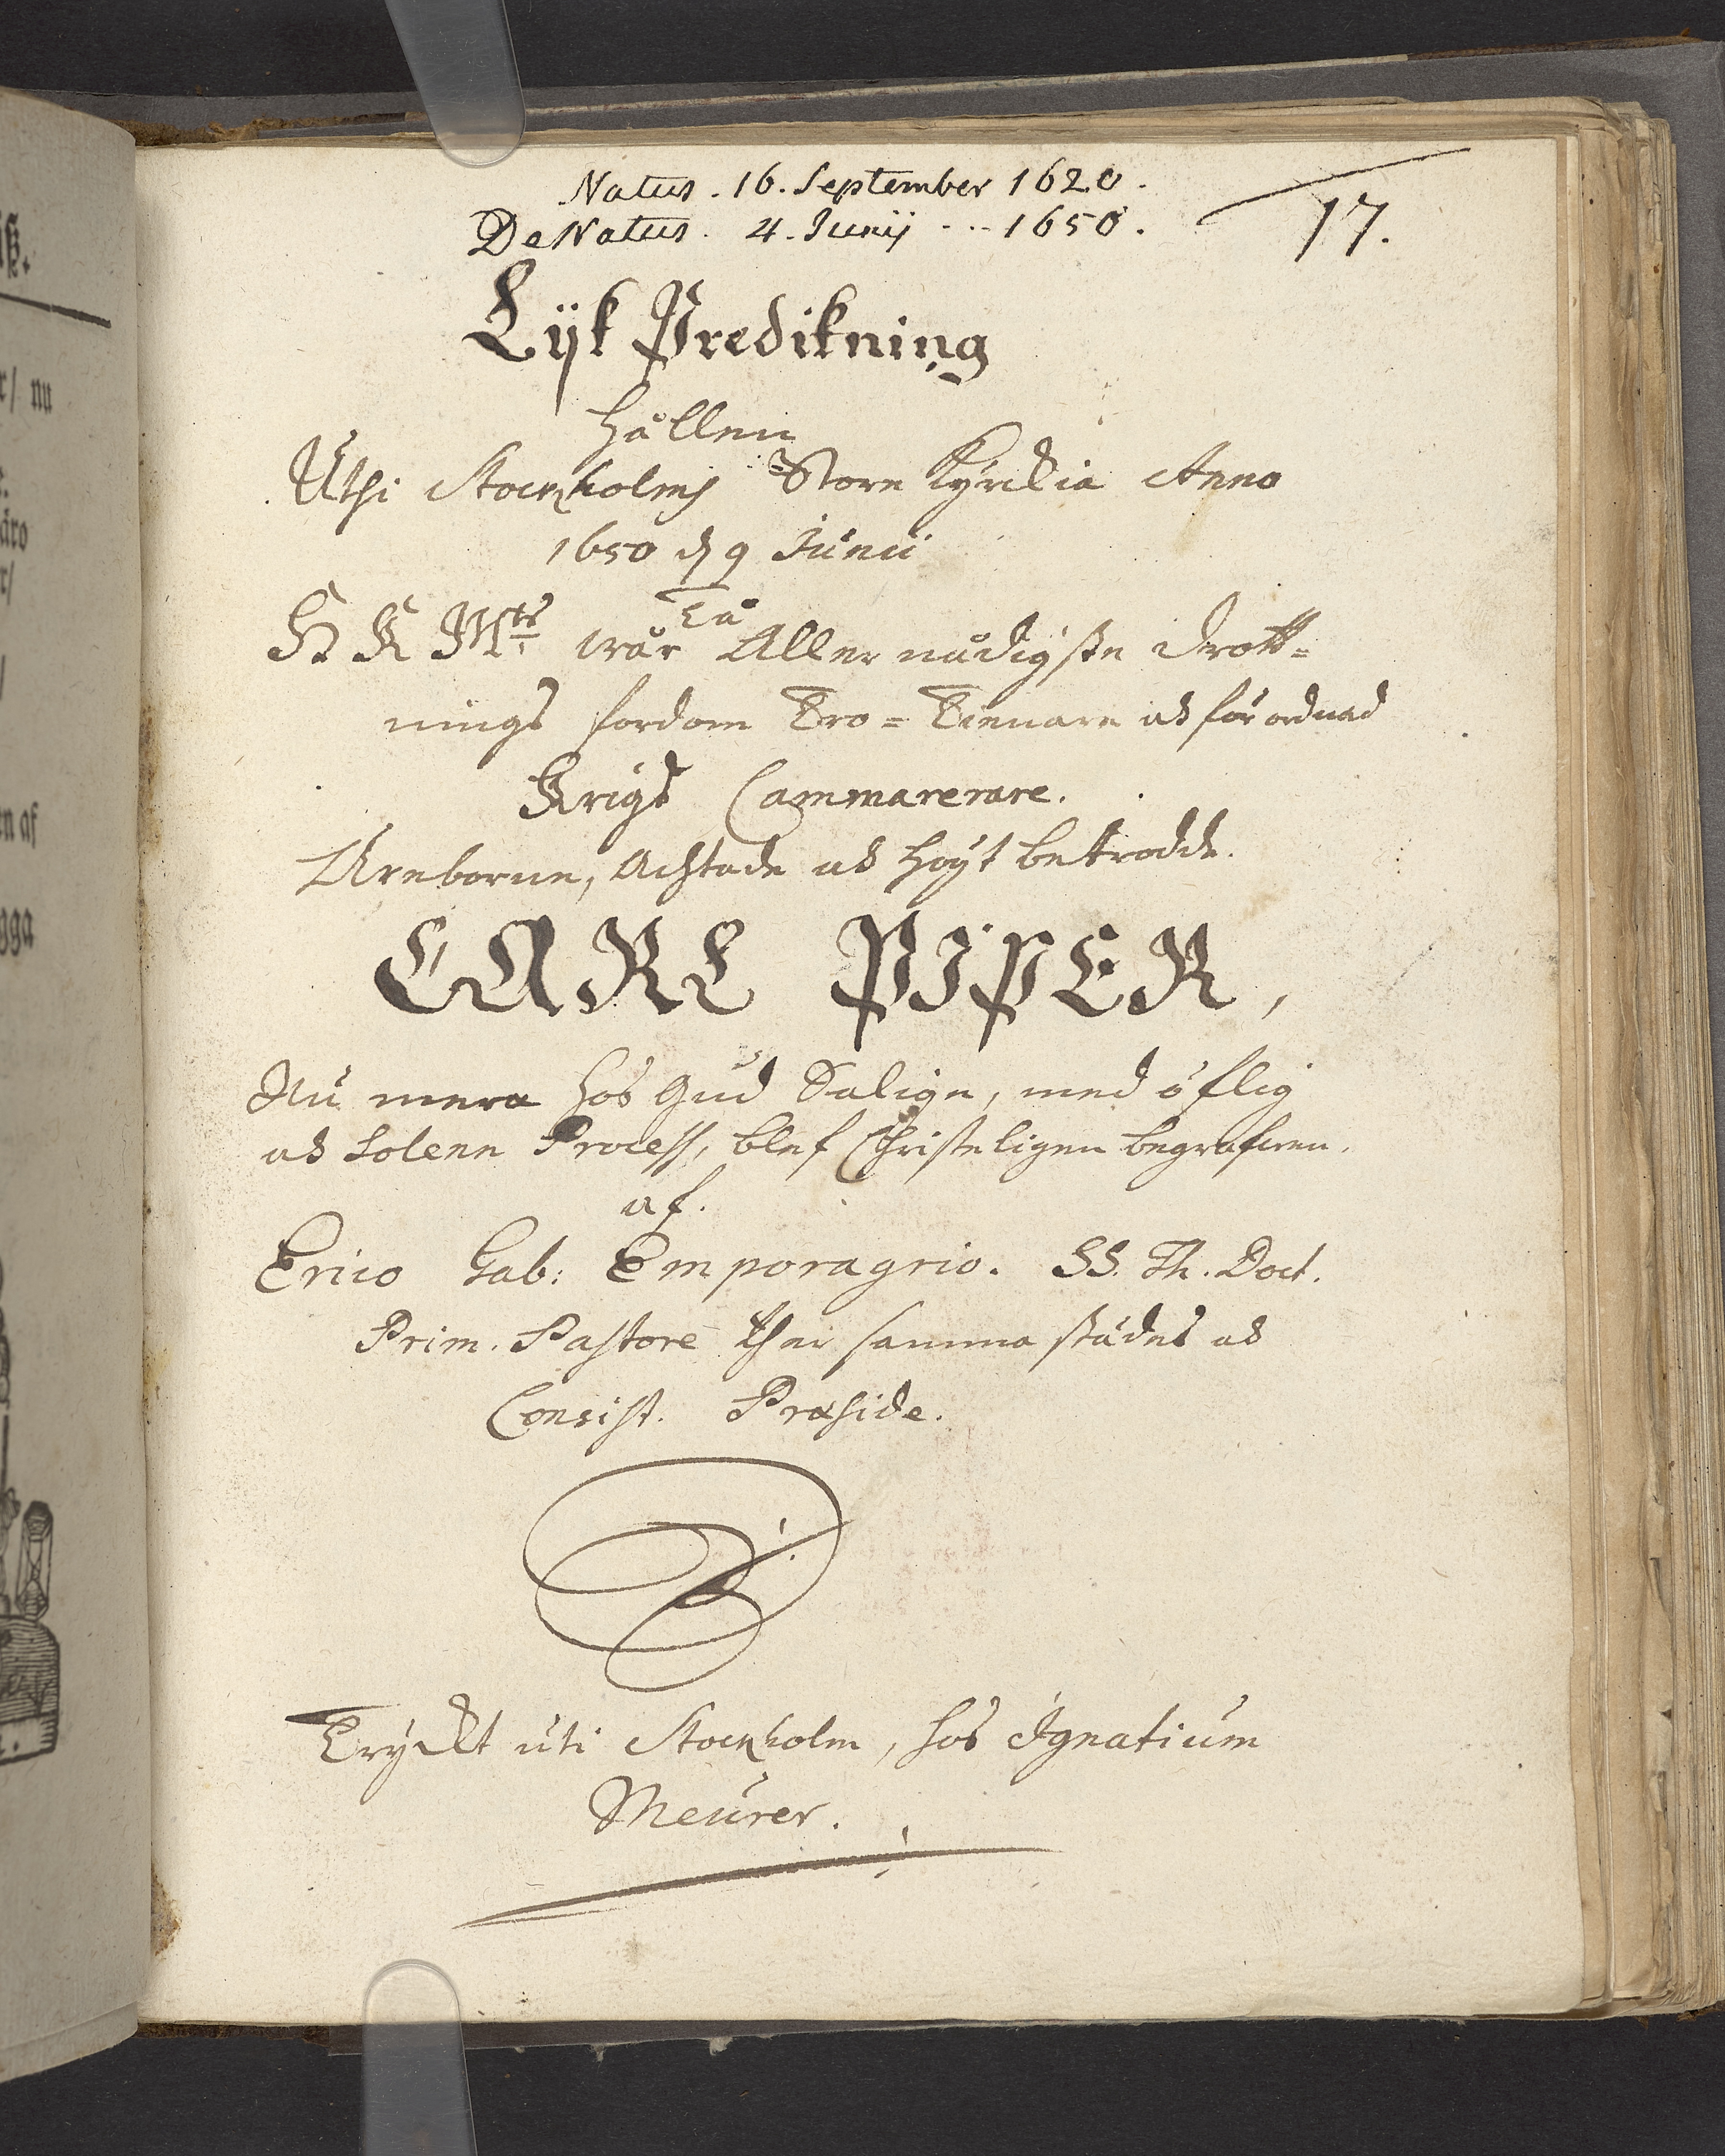 Natus. 16. September 1620.
DeNatus. 4. Junij ... 1650.
17.
Lijk Predikning
Hållen
Uthi Stockholms Store Kyrckia Anno
1650 d 9 Junii
Tå
H K M:tz wår Aller nådigste drott=
nings fordom Tro=Tienare och förordnad
Krigs Cammarerare.
Ähreborne, Achtade och höyt betrodde.
CARL PIPER,
Nu mera hos Gud Salige, med öflig
och Solenn Process, blef Christeligen begrafwen.
af.
Erico Gab: Emporagrio. SS. Th. Doct.
Prim. Pastore thär samma städes och
Consist. Præside.
Tryckt uti Stockholm, hos Ignatium
Meurer.
nu
äro
en af
gga